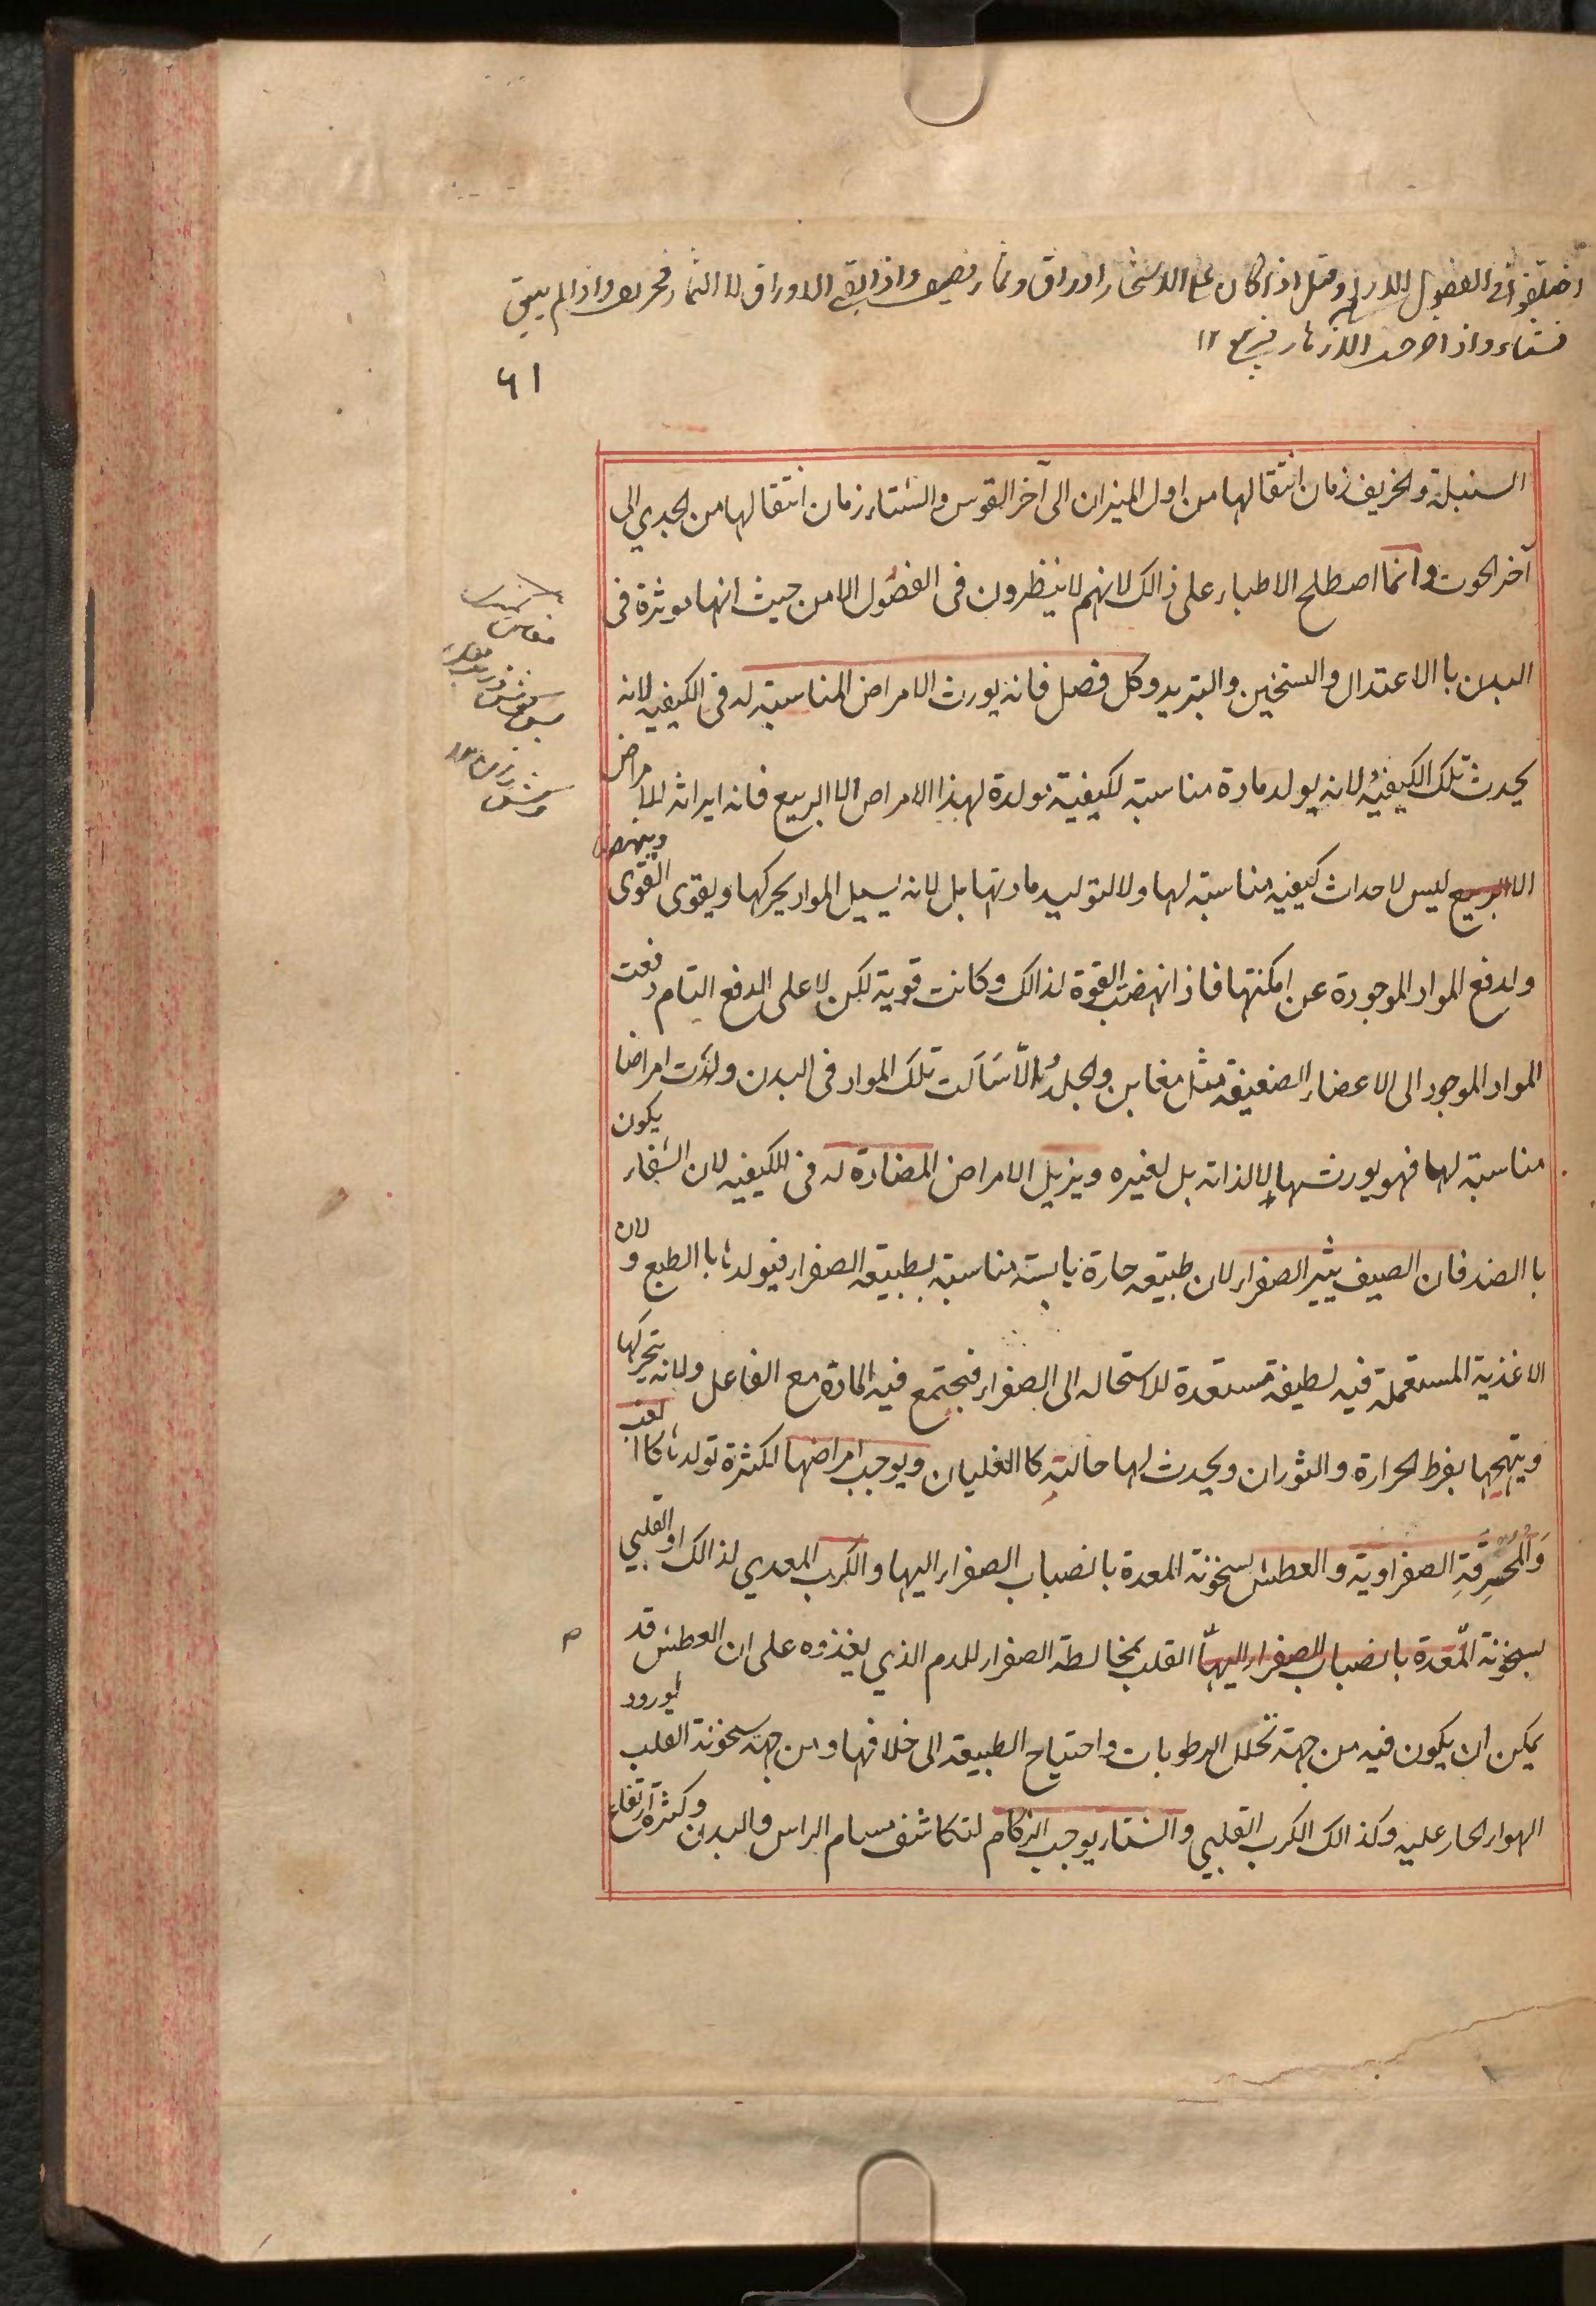 اختلفوا فى الفصول الاربعة وقيل اذا كان على الاشجار اوراق وثمار فصيف واذا بقي الاوراق لا الثمار فخريف واذا لم يبق
فشتاء واذا الازهار فربيع ١٢
٦١
السنبلة والخريف زمان انتقالها من اول الميزان الى آخر القوس والشتاء زمان انتقالها من الجدي الى
آخر الحوت وانما اصطلح الاطباء على ذالك لانهم لا ينظرون فى الفصول الا من حيث انها موثرة فى
البدن با الاعتدال والتسخين والتبريد وكل فصل فانه يورث الامراض المناسبة له فى الكيفيه لانه
يحدث تلك الكيفية ولانه يولد مادة مناسبة لكيفية مولدة لهذا الامراض الا الربيع فانه ايراثه للامراض
الا الربيع ليس لاحداث كيفيه مناسبة لها ولا لتوليد مادتها بل لانه يسيل المواد يحركها ويقوى القوى وينهضها
ولدفع المواد الموجودة عن امكنتها فاذ انهضت القوة لذالك وكانت قوية لكن لا على الدفع التام دفعت
المواد الموجود الى الاعضاء الضعيفة مثل مغابن والجلد والّا سَالَت تلك المواد فى البدن ولّدت امراضا
مناسبة لها فهو يورثها لا لذاته بل لغيره ويزيل الامراض المضادة له فى الكيفيه لان الشفاء يكون
با الضد فان الصيف يثير الصفراء لان طبيعه حارة يابسة مناسبة لطبيعة الصفراء فيولدها با الطبع و لان
الاغذية المستعملة فيه لطيفة مستعدة للاستحاله الى الصفراء فيجتمع فيه المادة مع الفاعل ولانه يتحركها
ويتهيجها بفرط الحرارة والثوران ويحدث لها حالته كا الغليان ويوجب امراضها لكثرة تولدها كا الغب
وَالمُحْرِقَةِ الصفراوية والعطش لسخونة المعدة بانصباب الصفراء اليها والكرب المعدي لذالك او القلبي
لسخونة المعدة بانصباب الصفراء اليها القلب بمخالطة الصفراء للدم الذي يغذوه على ان العطش قد
يمكن ان يكون فيه من جهة تحلل الرطوبات واحتياج الطبيعة الى خلافها ومن جهة سخونة القلب لورود
الهواء الحار عليه وكذالك الكرب القلبي والشتاء يوجب الزكام لتكاثف مسام الراس والبدن وكثرة ارتفاع